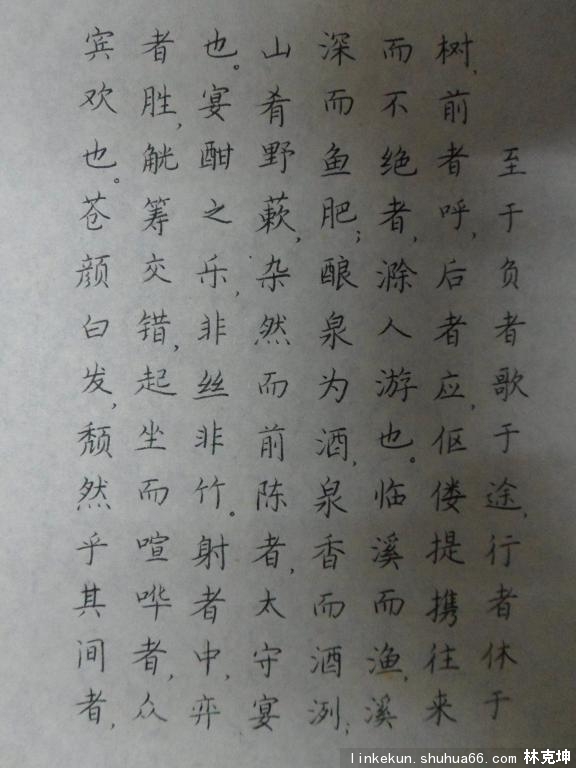 至于负者歌于途,行者休于
树,前者呼,后者应,伛偻提携往来
而不绝者,滁人游也。临溪而渔,溪
深而鱼肥;酿泉为酒,泉香而酒洌;
山肴野蔌,杂然而前陈者,太守宴
也。宴酣之乐,非丝非竹。射者中,弈
者胜,觥筹交错,起坐而喧哗者,众
宾欢也。苍颜白发,颓然乎其间者,
linkekun.shuhua66.com 林克坤